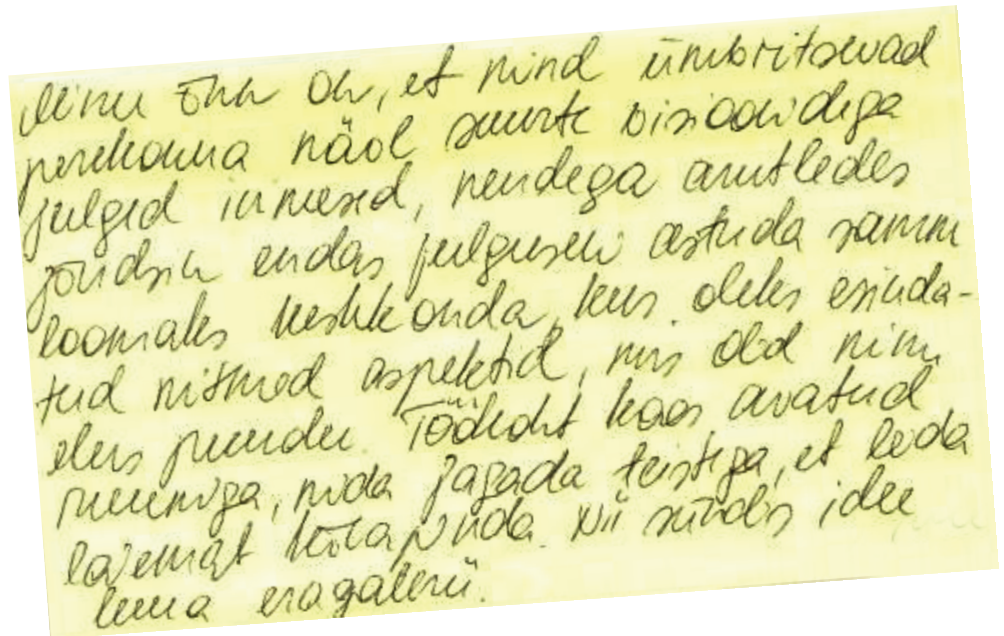 Minu õnn on, et mind ümbritsevad
perekonna näol suurte visioonidega
julged inimesed, nendega arutledes
jõudsin endas julguseni astuda samm
loomaks keskkonda, kus oleks esinda-
tud mitmed aspektid, mis olid minu
elus puudu. Töökoht koos avatud
ruumiga, mida jagada teistega, et leida
laiemat kõlapinda. Nii sündis idee
luua eragalerii.